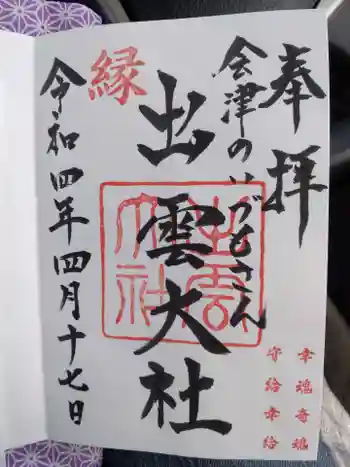 奉拝
会津のいづもさん
出雲大社
縁
令和四年四月十七日
出雲大社
幸魂奇魂
守給幸給